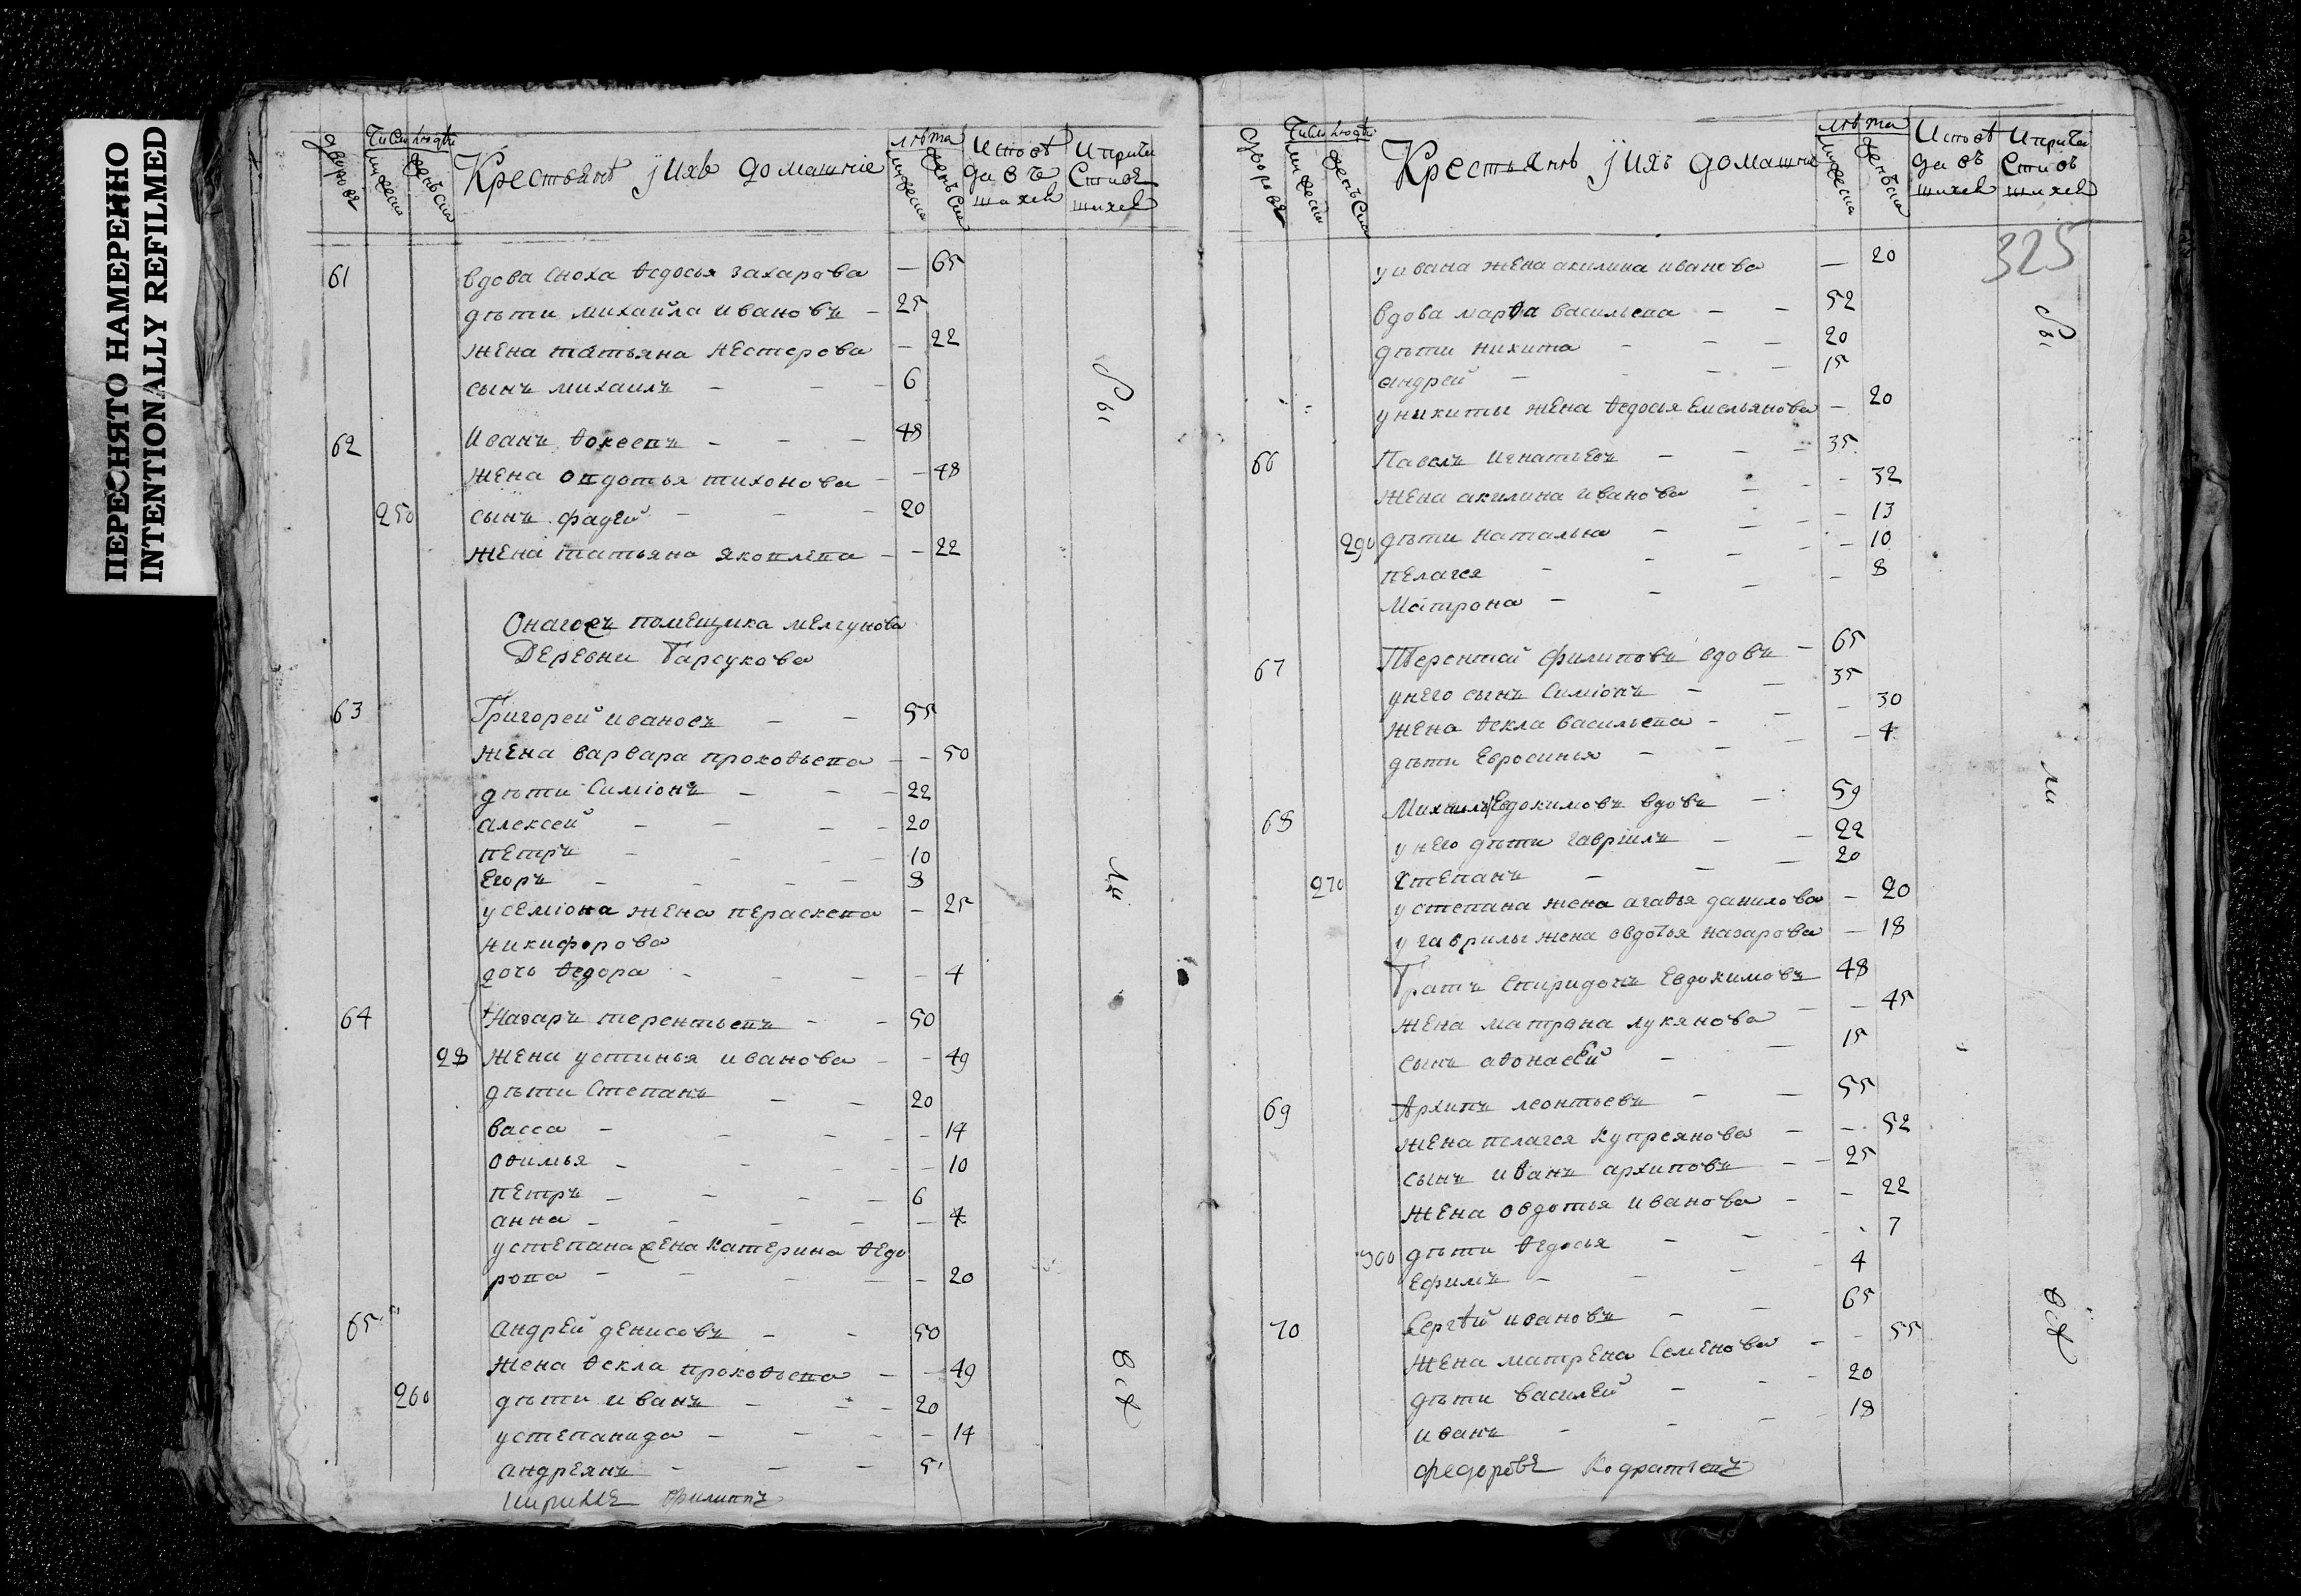 ПЕРЕСНЯТО НАМЕРЕННО
INTENTIONALLY REFILMED
дворовъ
Число людей
мужеска
женъска
Крестьянѣ и ихъ домашніе
лѣта
мужеска
женъска
Исповѣдавшихся
И причастившихся
61 вдова сноха ѳедосья захарова — 65
дѣти михайла ивановъ — 25
жена татьяна нестерова — 22
сынъ михаилъ — — 6
62 Иванъ ѳокеевъ — — — 48
жена овдотья тихонова — 48
250 сынъ фадей — — — 20
жена татьяна яковлева — — 22
Онагоже помещика мелгунова
Деревни Барсукова
63 Григорей ивановъ — — 55
жена варвара прокоѳьева — — 50
дѣти Симіонъ — — — 22
алексей — — — — 20
петръ — — — — 10
Егоръ — — — — 8
у семіона жена пераскева — 25
никифорова
дочь ѳедора — — — — 4
64 Назаръ терентьевъ — — 50
28 жена устинья иванова — — 49
дѣти Степанъ — — 20
васса — — — — — 14
оѳимья — — — — 10
петръ — — — — 6
анна — — — — — 4
у степана жена катерина ѳедо
рова — — — — — 20
65 андрей денисовъ — — 50
жена ѳекла прокоѳьева — — 49
260 дѣти иванъ — — — 20
устепанида — — — — 14
андреянъ — — — 5
филиппъ
вы
ли
всѣ
дворовъ
Число людей
мужеска
женъска
Крестьянѣ и ихъ домашніе
лѣта
мужеска
женъска
Исповѣдавшихся
И причастившихся
325
у ивана жена акилина иванова — 20
вдова марѳа васильева — — 52
дѣти никита — — — 20
андрей — — — — 15
у никиты жена ѳедосья Емельянова — 20
66 Павелъ игнатьевъ — — — 35
жена акилина иванова — — 32
290 дѣти наталья — — — — 13
пелагея — — — — 10
Матрона — — — — 8
67 Терентей филиповъ вдовъ — 65
у него сынъ Симіонъ — — 35
жена ѳекла васильева — — — 30
дѣти Евросинья — — — — 4
68 Михаилъ Евдокимовъ вдовъ — 59
у него дѣти гавріилъ — — 22
270 Степанъ — — — 20
у степана жена агаѳья данилова — 20
у гаврилы жена овдотья назарова — 18
Братъ Спиридонъ Евдокимовъ 48
жена матрона лукянова — — 45
сынъ аѳонасей — — 15
69 Архипъ леонтьевъ — — 55
жена пелагея купреянова — — 52
сынъ иванъ архиповъ — — 25
жена овдотья иванова — — 22
300 дѣти ѳедосья — — — 7
Ефимъ — — — — 4
70 Сергѣй ивановъ — — 65
жена матрена Семенова — — 55
дѣти василей — — — 20
иванъ — — — 18
федоровъ Кодратьевъ
вы
ли
всѣ